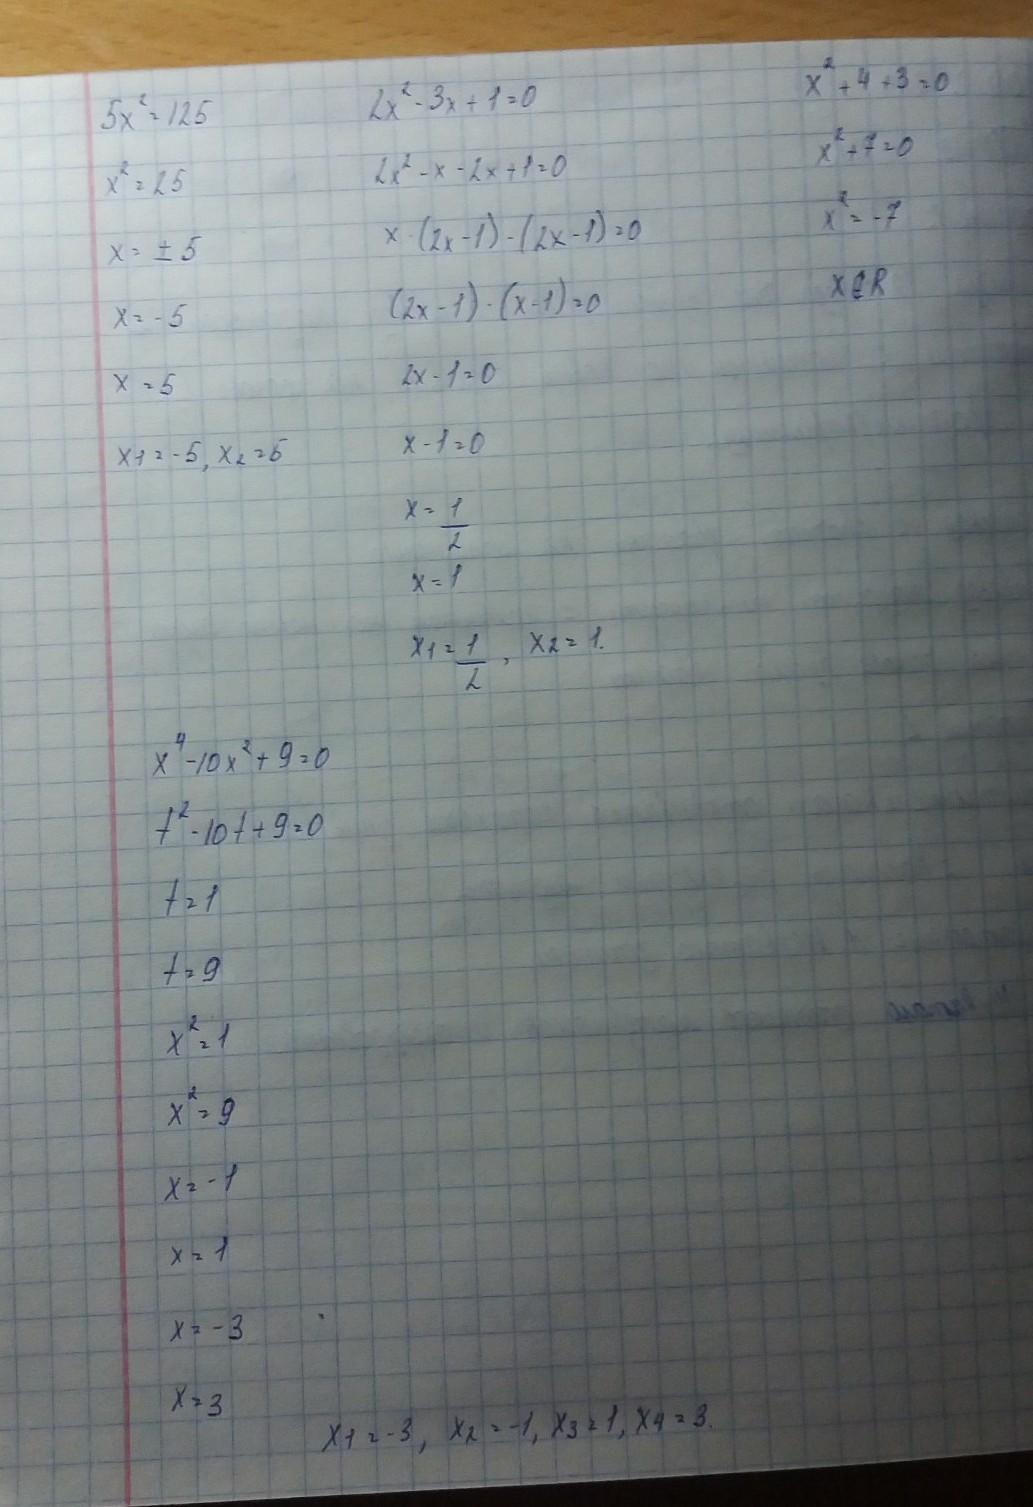 5x²=125
x²=25
x=±5
x=-5
x=5
x1=-5, x2=5
2x²-3x+1=0
2x²-x-2x+1=0
x·(2x-1)-(2x-1)=0
(2x-1)·(x-1)=0
2x-1=0
x-1=0
x=1/2
x=1
x1=1/2, x2=1.
x²+4+3=0
x²+7=0
x²=-7
x∉R
x⁴-10x²+9=0
t²-10t+9=0
t=1
t=9
x²=1
x²=9
x=-1
x=1
x=-3
x=3
x1=-3, x2=-1, x3=1, x4=3.